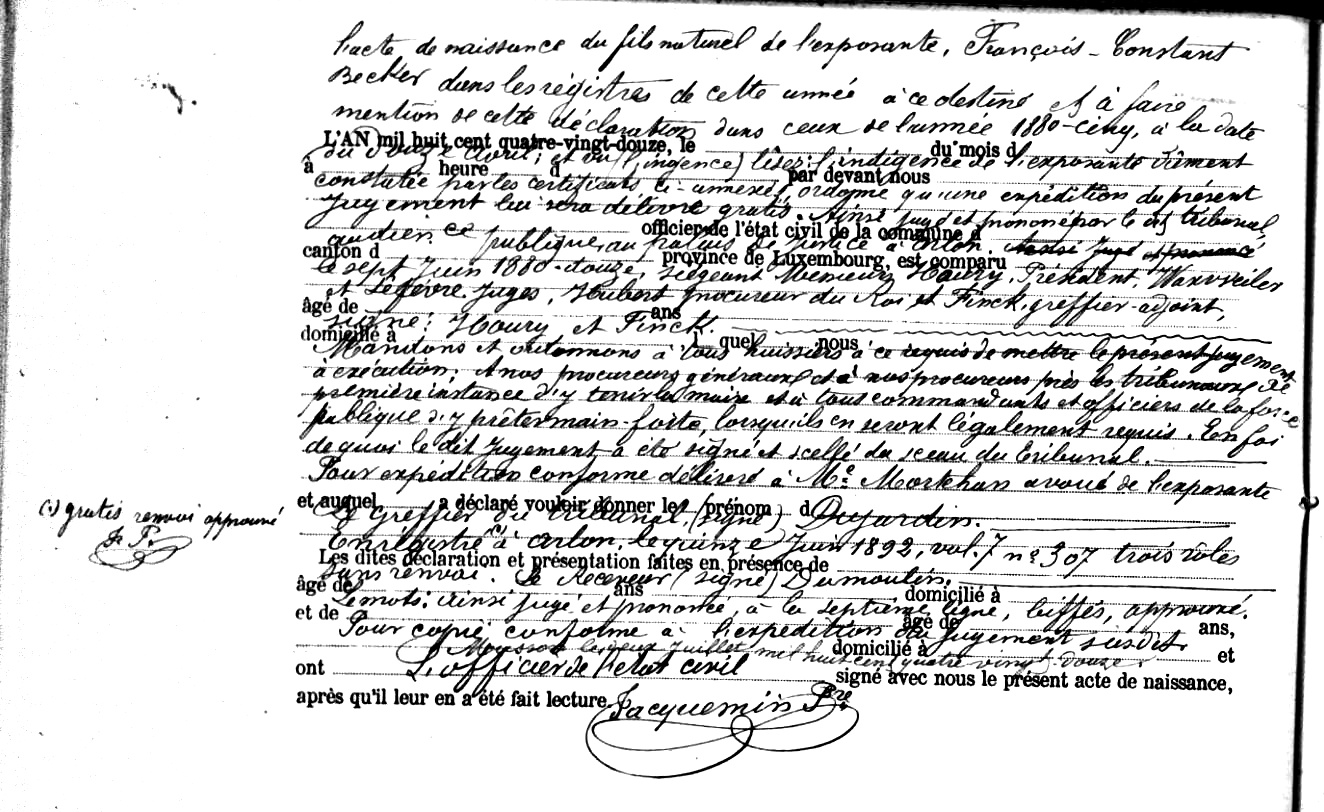 l'acte de naissance du fils naturel de l'exposante, François-Constant
Becker dans les régistres de cette année à ce destiné et à faire
mention de cette déclaration dans ceux de l'année 1880-cinq, à la date
L'AN mil huit cent quatre-vingt-douze, le du mois d
du douze avril; et vu (l'ingence) lisez: l'indigence de l'exposante dûment
à heure d par devant nous
constatée par les certificats ci-annexés, ordonne qu'une expédition du présent
jugement lui sera délivré gratis. Ainsi jugé et prononcé par le dit tribunal
officier de l'état civil de la commune d
audience publique, au palais de justice à Arlon. Ainsi jugé et prononcé
canton d province de Luxembourg, est comparu
le sept Juin 1880-douze, siégeant Messieurs Houry, Président, Wanveiler
et Lefèvre Juges, Hubert procureur du Roi et Finck, greffier-adjoint,
âgé de ans
signé: Houry et Finck.
domicilié à l quel nous
Mandons et ordonnons à tous huissiers à ce requis de mettre le présent jugement
à exécution; A nos procureurs généraux et à nos procureurs près les tribunaux de
première instance d'y tenir la maire et à tous commandants et officiers de la force
publique d'y prêter main-forte, lorsqu'ils en seront légalement requis. En foi
de quoi le dit jugement a été signé et scellé du sceau du tribunal.
Pour expédition conforme délivré à Me avoué de l'exposante
et auquel a déclaré vouloir donner les (prénom ) d
Le Greffier du tribunal, (signé) Dujardin.
(1) gratis renvoi approuvé
J. P.
Enrégistré à Arlon, le quinze Juin 1892, vol. 7 no 307 trois rôles
Les dites déclaration et présentation faites en présence de
sans renvoi. Le Receveur (signé) Dumoulin.
âgé de ans , domicilié à
Le mots: Ainsi jugé et prononcé, à la septième ligne, biffés, approuvé.
et de âgé de ans,
Pour copie conforme à l'expédition du jugement susdit.
domicilié à et
le deux juillet mil huit cent quatre vingt-douze.
L'officier de l'état civil
ont signé avec nous le présent acte de naissance,
après qu'il leur en a été fait lecture.
Jacquemin Pre